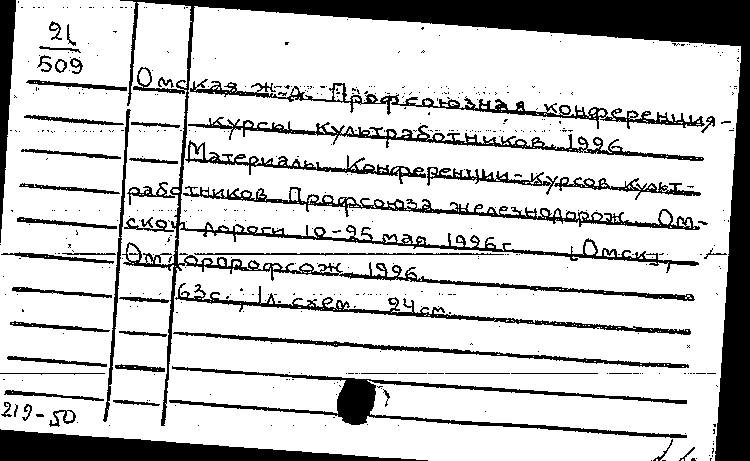 21
509
Омская ж-д. Профсоюзная конференция-
курсы культработников. 1926
Материалы Конференции-курсов культ-
работников Профсоюза железнодорож. Ом-
ской дороги 10-25 мая 1926 г. [Омск],
Омдорпрофсож, 1926.
63 с.; 1 л. схем. 24 см.
219-50